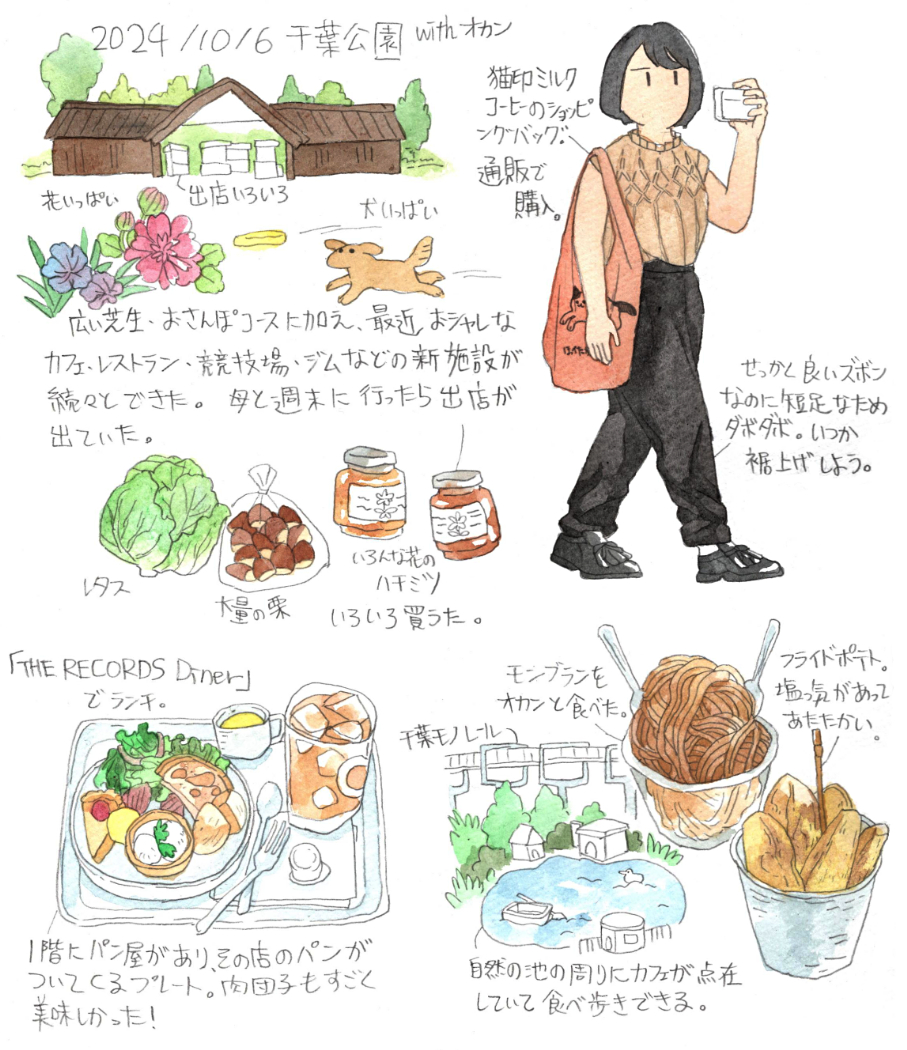 2024/10/6 千葉公園 with オカン
猫印ミルク
コーヒーのショッピ
ングバッグ。
通販で
購入。
花いっぱい
出店いろいろ
犬いっぱい
広い芝生、おさんぽコースに加え、最近おシャレな
カフェ、レストラン、競技場、ジムなどの新施設が
続々とできた。母と週末に行ったら出店が
出ていた。
せっかく良いズボン
なのに短足なため
ダボダボ。いつか
裾上げしよう。
レタス
大量の栗
いろんな花の
ハチミツ
いろいろ買うた。
「THE RECORDS Diner」
でランチ。
1階にパン屋があり、その店のパンが
ついてくるプレート。肉団子もすごく
美味しかった!
モンブランを
オカンと食べた。
フライドポテト。
塩っ気があって
あたたかい。
千葉モノレール
自然の池の周りにカフェが点在
していて食べ歩きできる。